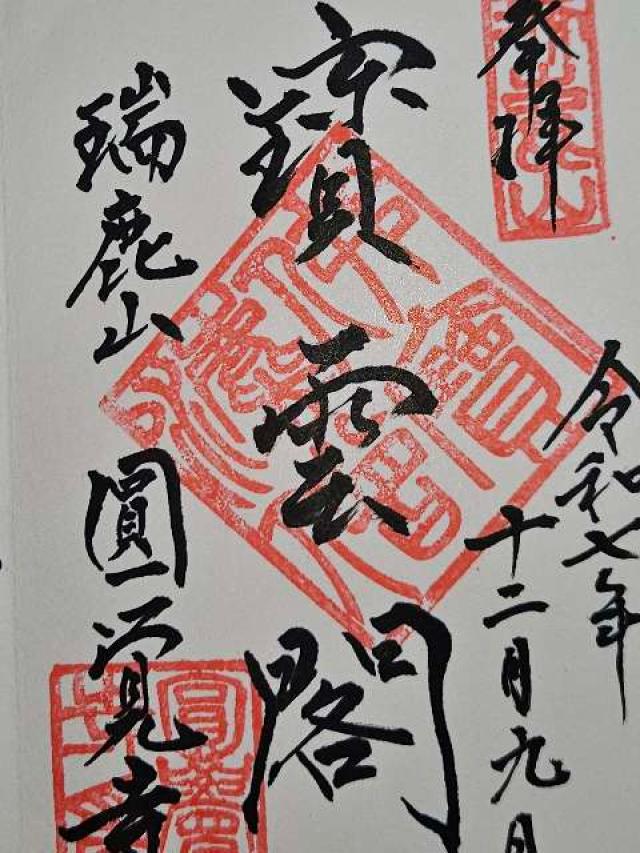 奉拝
令和七年
十二月九日
寳雲閣
瑞鹿山 圓覚寺